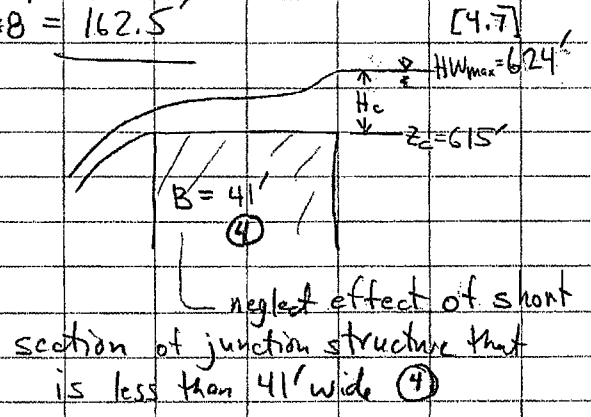 8 = 162.5'
[4.7]
HWmax=624'
Hc
Zc=615'
B = 41'
4
neglect effect of short
section of junction structure that
is less than 41' wide 4